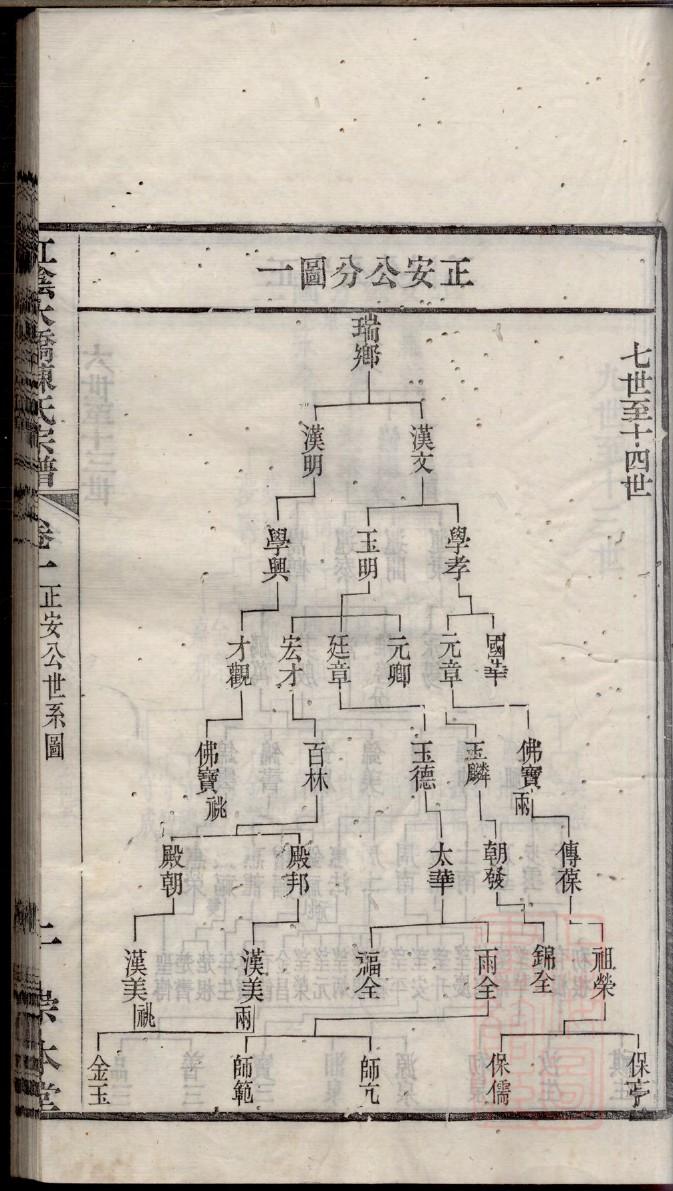 正安公分圖一
七世至十四世
瑞鄉
漢文
漢明
學孝
玉明
學興
國華
元章
元卿
廷章
宏才
才觀
佛寶兩
玉麟
玉德
百林
佛寶祧
傳葆
朝發
太華
殿邦
殿朝
祖榮
錦全
雨全
福全
漢美兩
漢美祧
保亨
保儒
師亢
師範
金玉
江陰大橋陳氏宗譜
卷一正安公世系圖
崇本堂